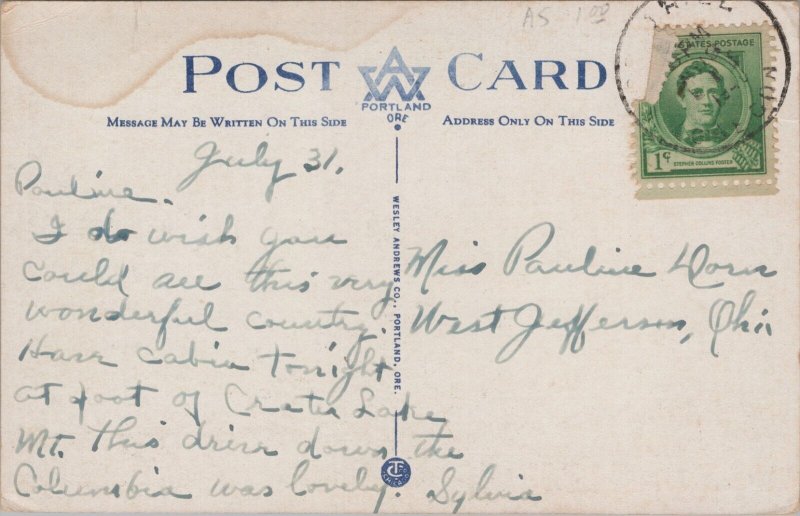 AS 1.00
POST CARD
PORTLAND
ORE
MESSAGE MAY BE WRITTEN ON THIS SIDE
ADDRESS ONLY ON THIS SIDE
STATES POSTAGE
1¢
STEPHEN COLLINS FOSTER
WESLEY ANDREWS CO., PORTLAND, ORE.
July 31.
Pauline.
I do wish you
could see this very
wonderful country.
Have cabin tonight
at foot of Crater Lake
Mt. This drive down the
Columbia was lovely. Sylvia
Miss Pauline Dorn
West Jefferson, Ohio